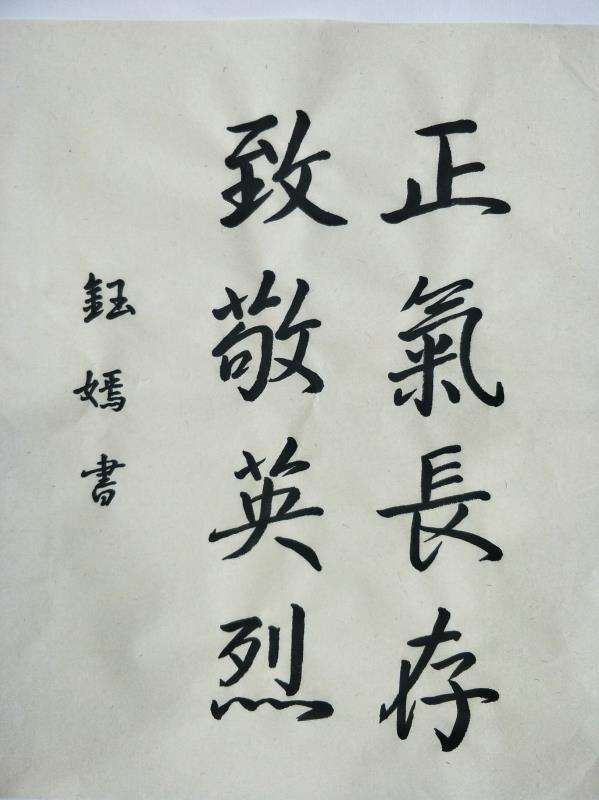 正氣長存
致敬英烈
鈺嫣書